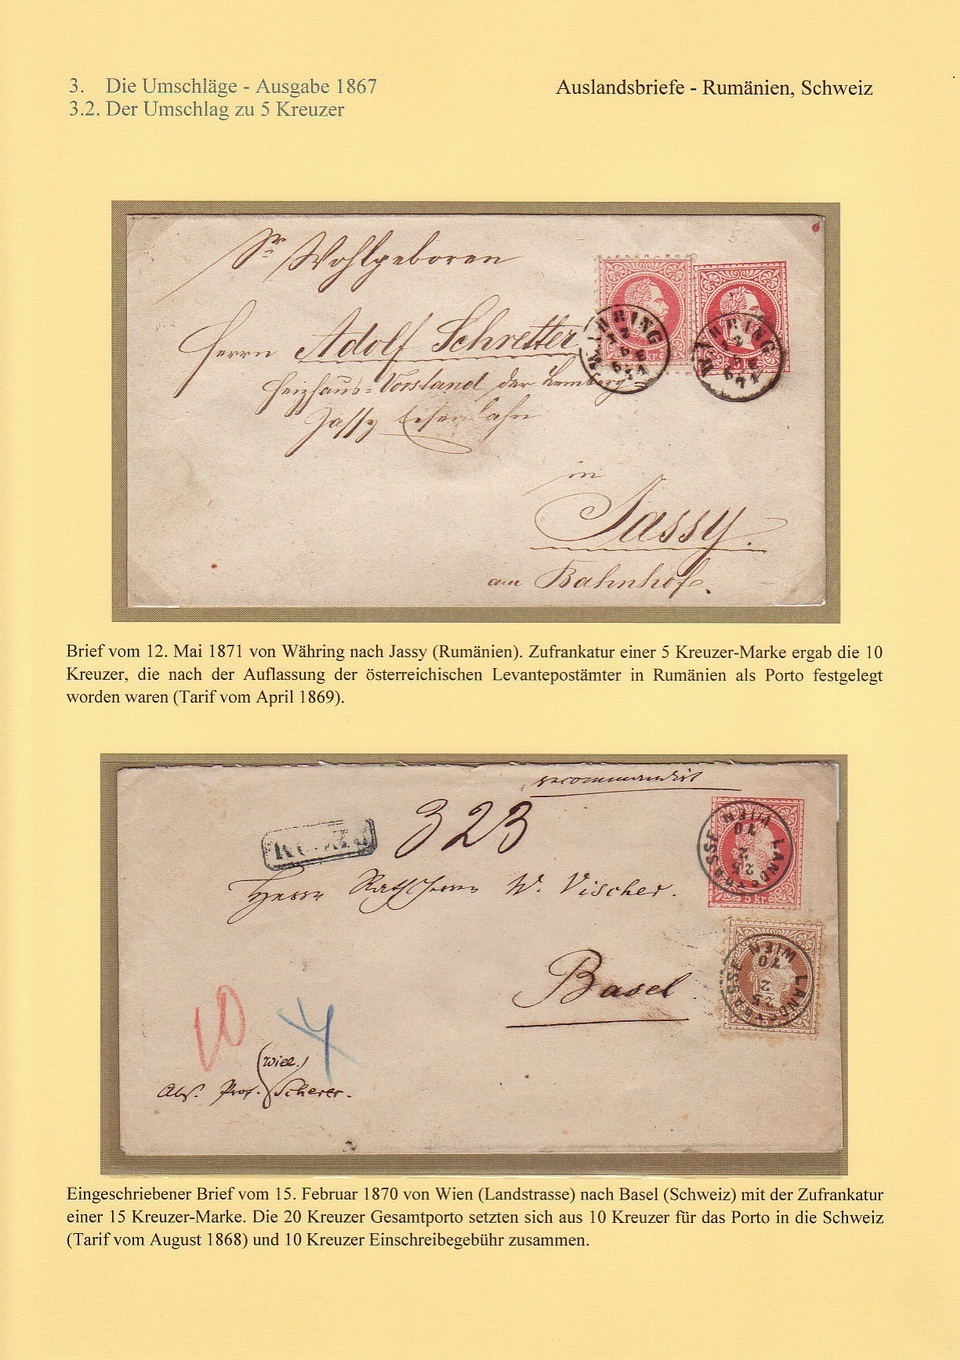 3. Die Umschläge - Ausgabe 1867
3.2. Der Umschlag zu 5 Kreuzer
Auslandsbriefe - Rumänien, Schweiz
Sr Wohlgeboren
Herrn Adolf Schretter
Heizhaus=Vorstand der Lemberg
Jassy Eisenbahn
in
Jassy.
am Bahnhofe.
WÄHRING
WÄHRING
Brief vom 12. Mai 1871 von Währing nach Jassy (Rumänien). Zufrankatur einer 5 Kreuzer-Marke ergab die 10
Kreuzer, die nach der Auflassung der österreichischen Levantepostämter in Rumänien als Porto festgelegt
worden waren (Tarif vom April 1869).
recommandirt
323
RECOM
Herrn Rathsherrn W. Vischer.
Basel
5 kr.
LANDSTRASSE WIEN
LANDSTRASSE WIEN
10
4
(Wien)
Abs. Prof. Scherer.
Eingeschriebener Brief vom 15. Februar 1870 von Wien (Landstrasse) nach Basel (Schweiz) mit der Zufrankatur
einer 15 Kreuzer-Marke. Die 20 Kreuzer Gesamtporto setzten sich aus 10 Kreuzer für das Porto in die Schweiz
(Tarif vom August 1868) und 10 Kreuzer Einschreibegebühr zusammen.